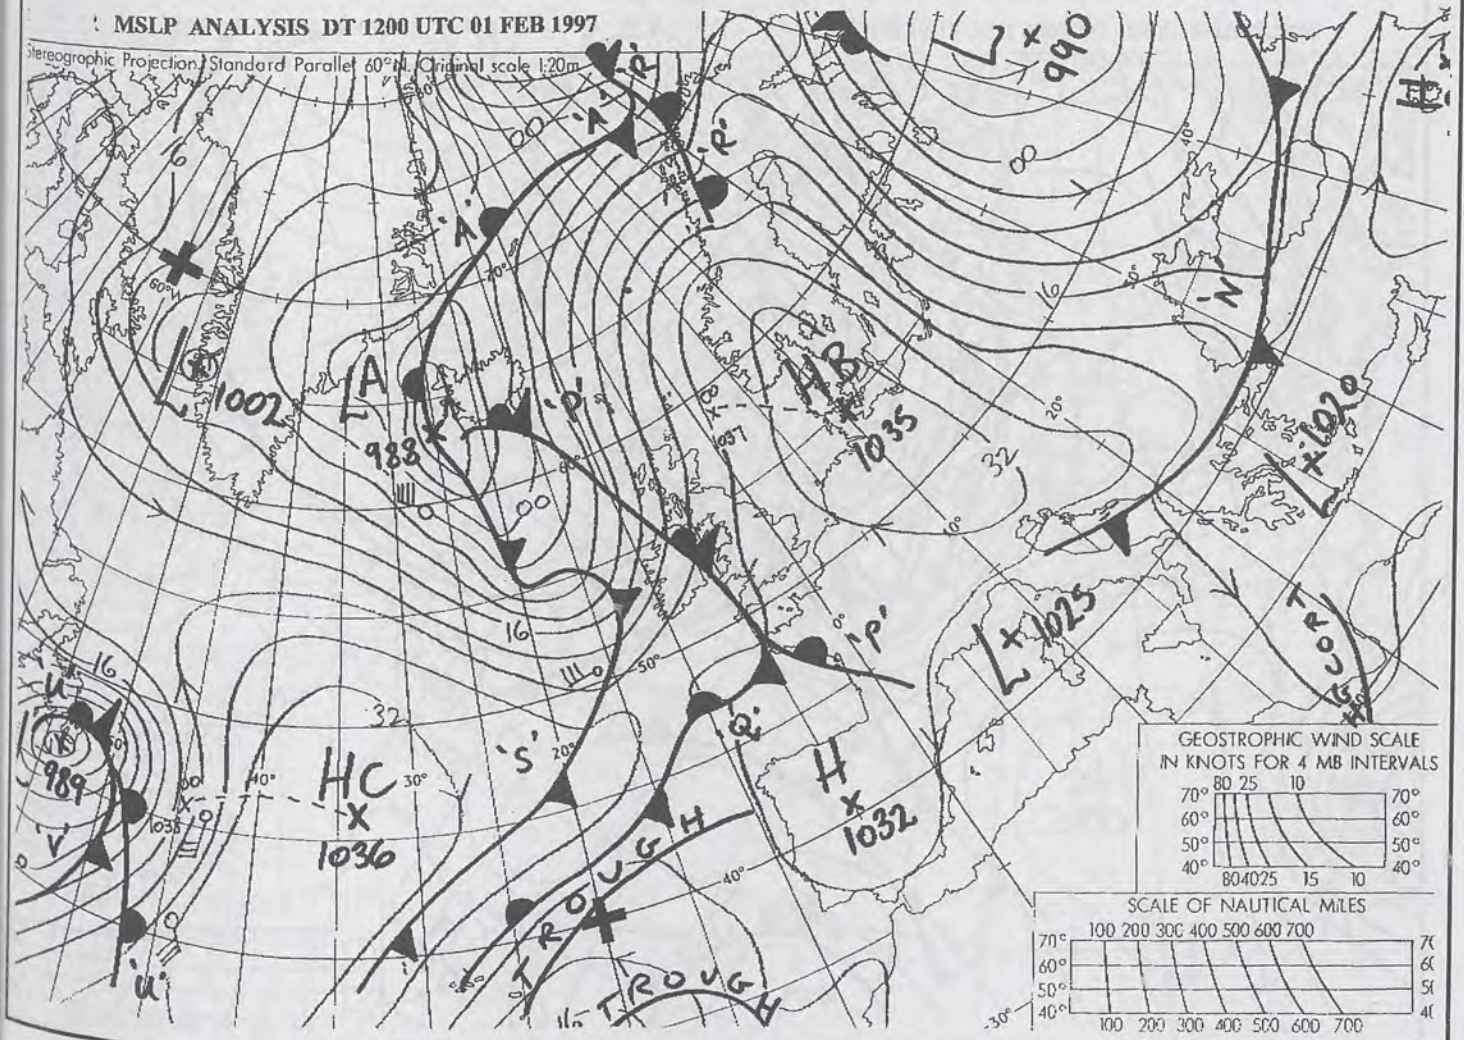 MSLP ANALYSIS DT 1200 UTC 01 FEB 1997
Stereographic Projection, Standard Parallel 60°N, Original scale 1:20m
L × 990
H
'A'
'R'
'R'
00
00
40°
16
'A'
70°
60°
L 1002
LA
988
'P'
60°
00
HB
1035
1037
16
'N'
20°
32
10°
L × 1020
L + 1025
TROUGH
'P'
0°
16
50°
16
'U'
989
'V'
'U'
32
HC
×
1036
40°
30°
1038
'S'
20°
'Q'
H
×
1032
40°
TROUGH
TROUGH
-30°
GEOSTROPHIC WIND SCALE
IN KNOTS FOR 4 MB INTERVALS
80 25 10
70° 70°
60° 60°
50° 50°
40° 40°
80 40 25 15 10
SCALE OF NAUTICAL MILES
100 200 300 400 500 600 700
70°
60°
50°
40°
100 200 300 400 500 600 700